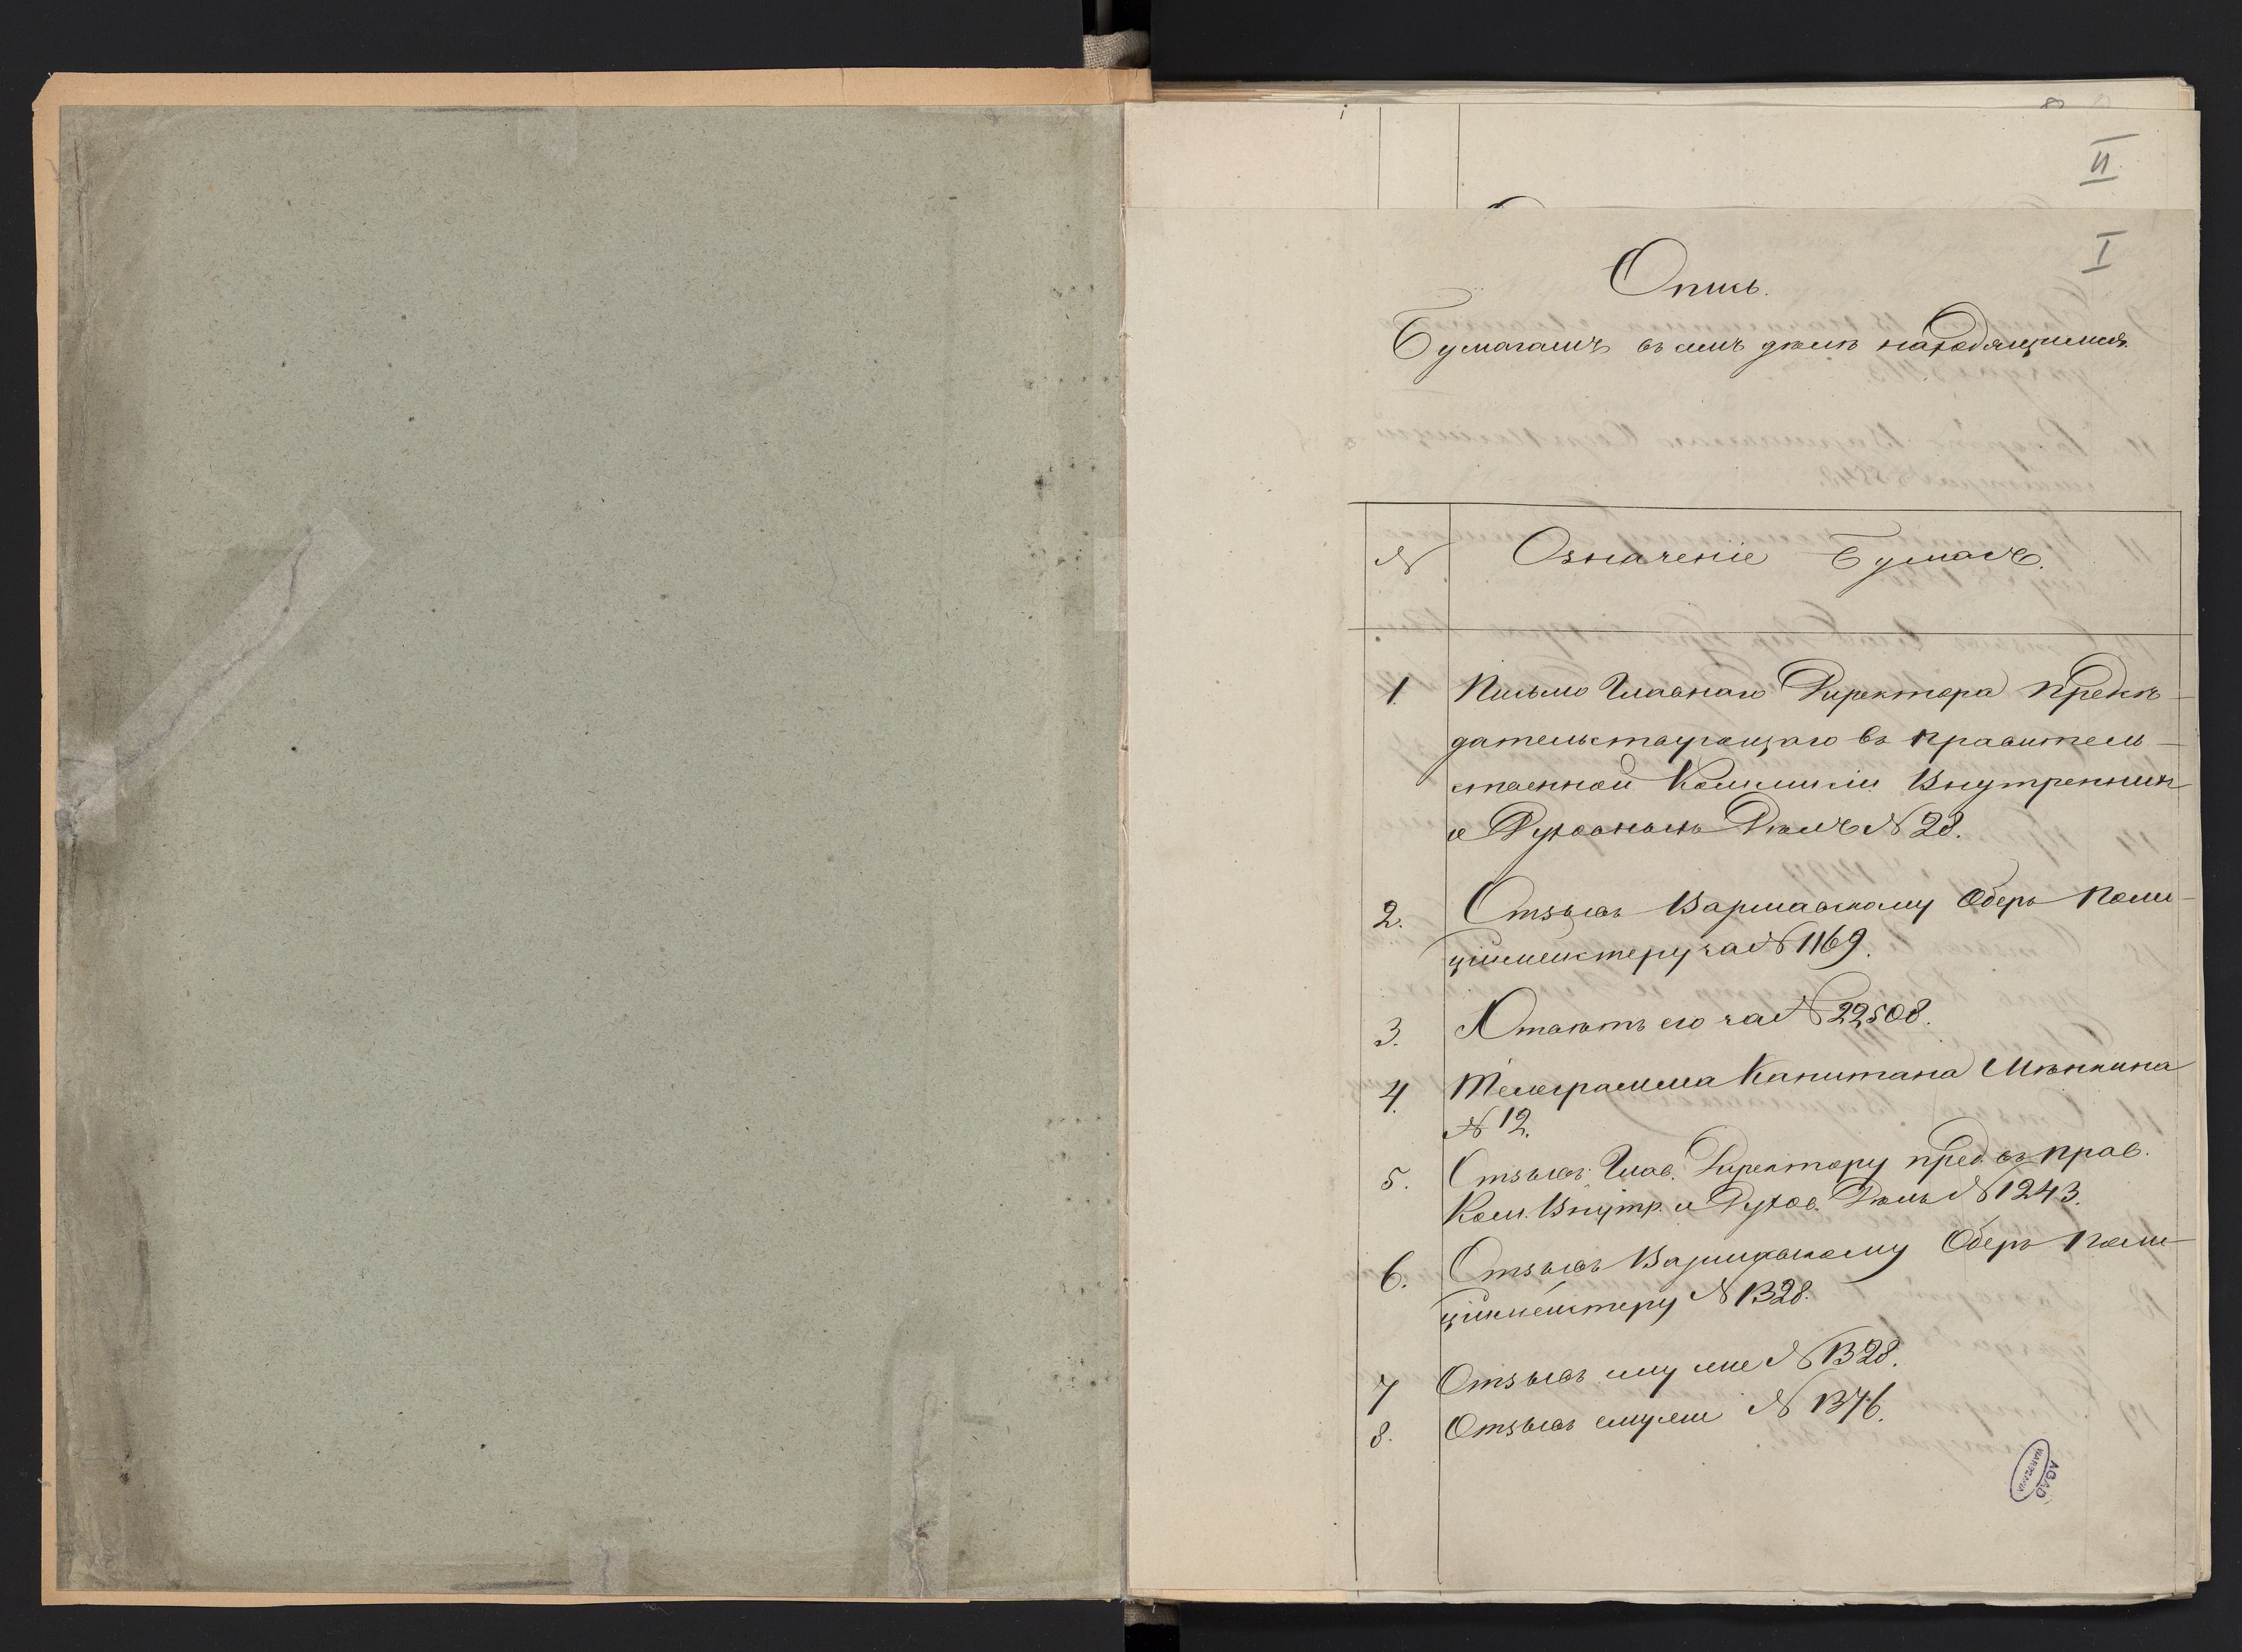 II
I
Опись.
Бумагамъ въ семъ дѣлѣ находящимся.
№ Означеніе Бумагъ.
1. Письмо Главнаго Директора Предсѣ-
дательствующаго въ Правитель-
ственной Коммисіи Внутреннихъ
и Духовныхъ Дѣлъ № 28.
2. Отзывъ Варшавскому Оберъ Поли-
ціймейстеру за № 1169.
3. Отвѣтъ его за № 22508.
4. Телеграмма Капитана
№ 12.
5. Отзывъ Глав. Директору пред. въ прав.
Ком. Внутр. и Духов. Дѣлъ № 1243.
6. Отзывъ Варшавскому Оберъ Поли-
ціймейстеру № 1328.
7 Отзывъ ему же № 1328.
8. Отзывъ ему же № 1376.
AGAD
WARSZAWA